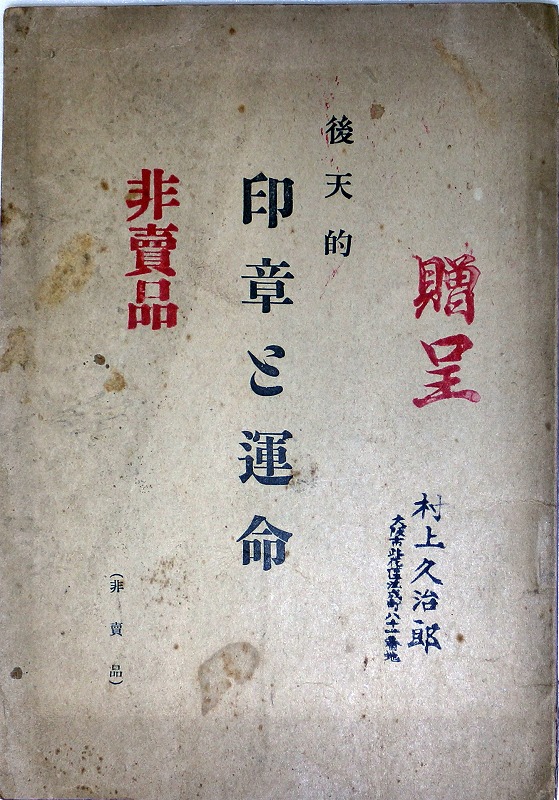 贈呈
村上久治郎
大阪市此花区茂町八十一番地
後天的
印章と運命
非賣品
(非賣品)